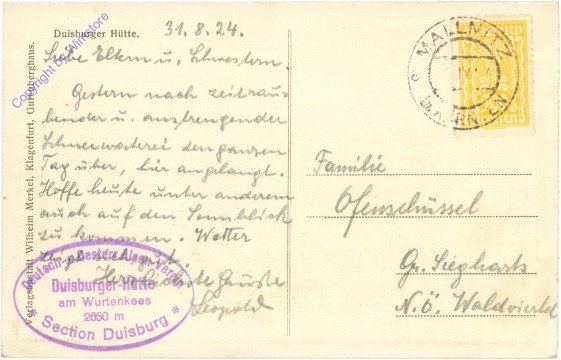 Duisburger Hütte.
31. 8. 24.
Liebe Eltern u. Schwestern.
Gestern nach zeitrau-
bender u. anstrengender
Schneewaterei den ganzen
Tag über, hier angelangt.
Hoffe heute unter anderem
auch auf den Sonnblick
zu kommen. Wetter
sehr gut.
Herzlichste Grüsse
Leopold
Verlagsanstalt Wilhelm Merkel, Klagenfurt, Gutenberghaus.
Copyright by Winstore
Deutsch. u. Oesterr. Alpen-Verein
Duisburger-Hütte
am Wurtenkees
2650 m
* Section Duisburg *
MALLNITZ
KÄRNTEN
Familie
Ofenschüssel
Gr. Siegharts
N. Ö. Waldviertel